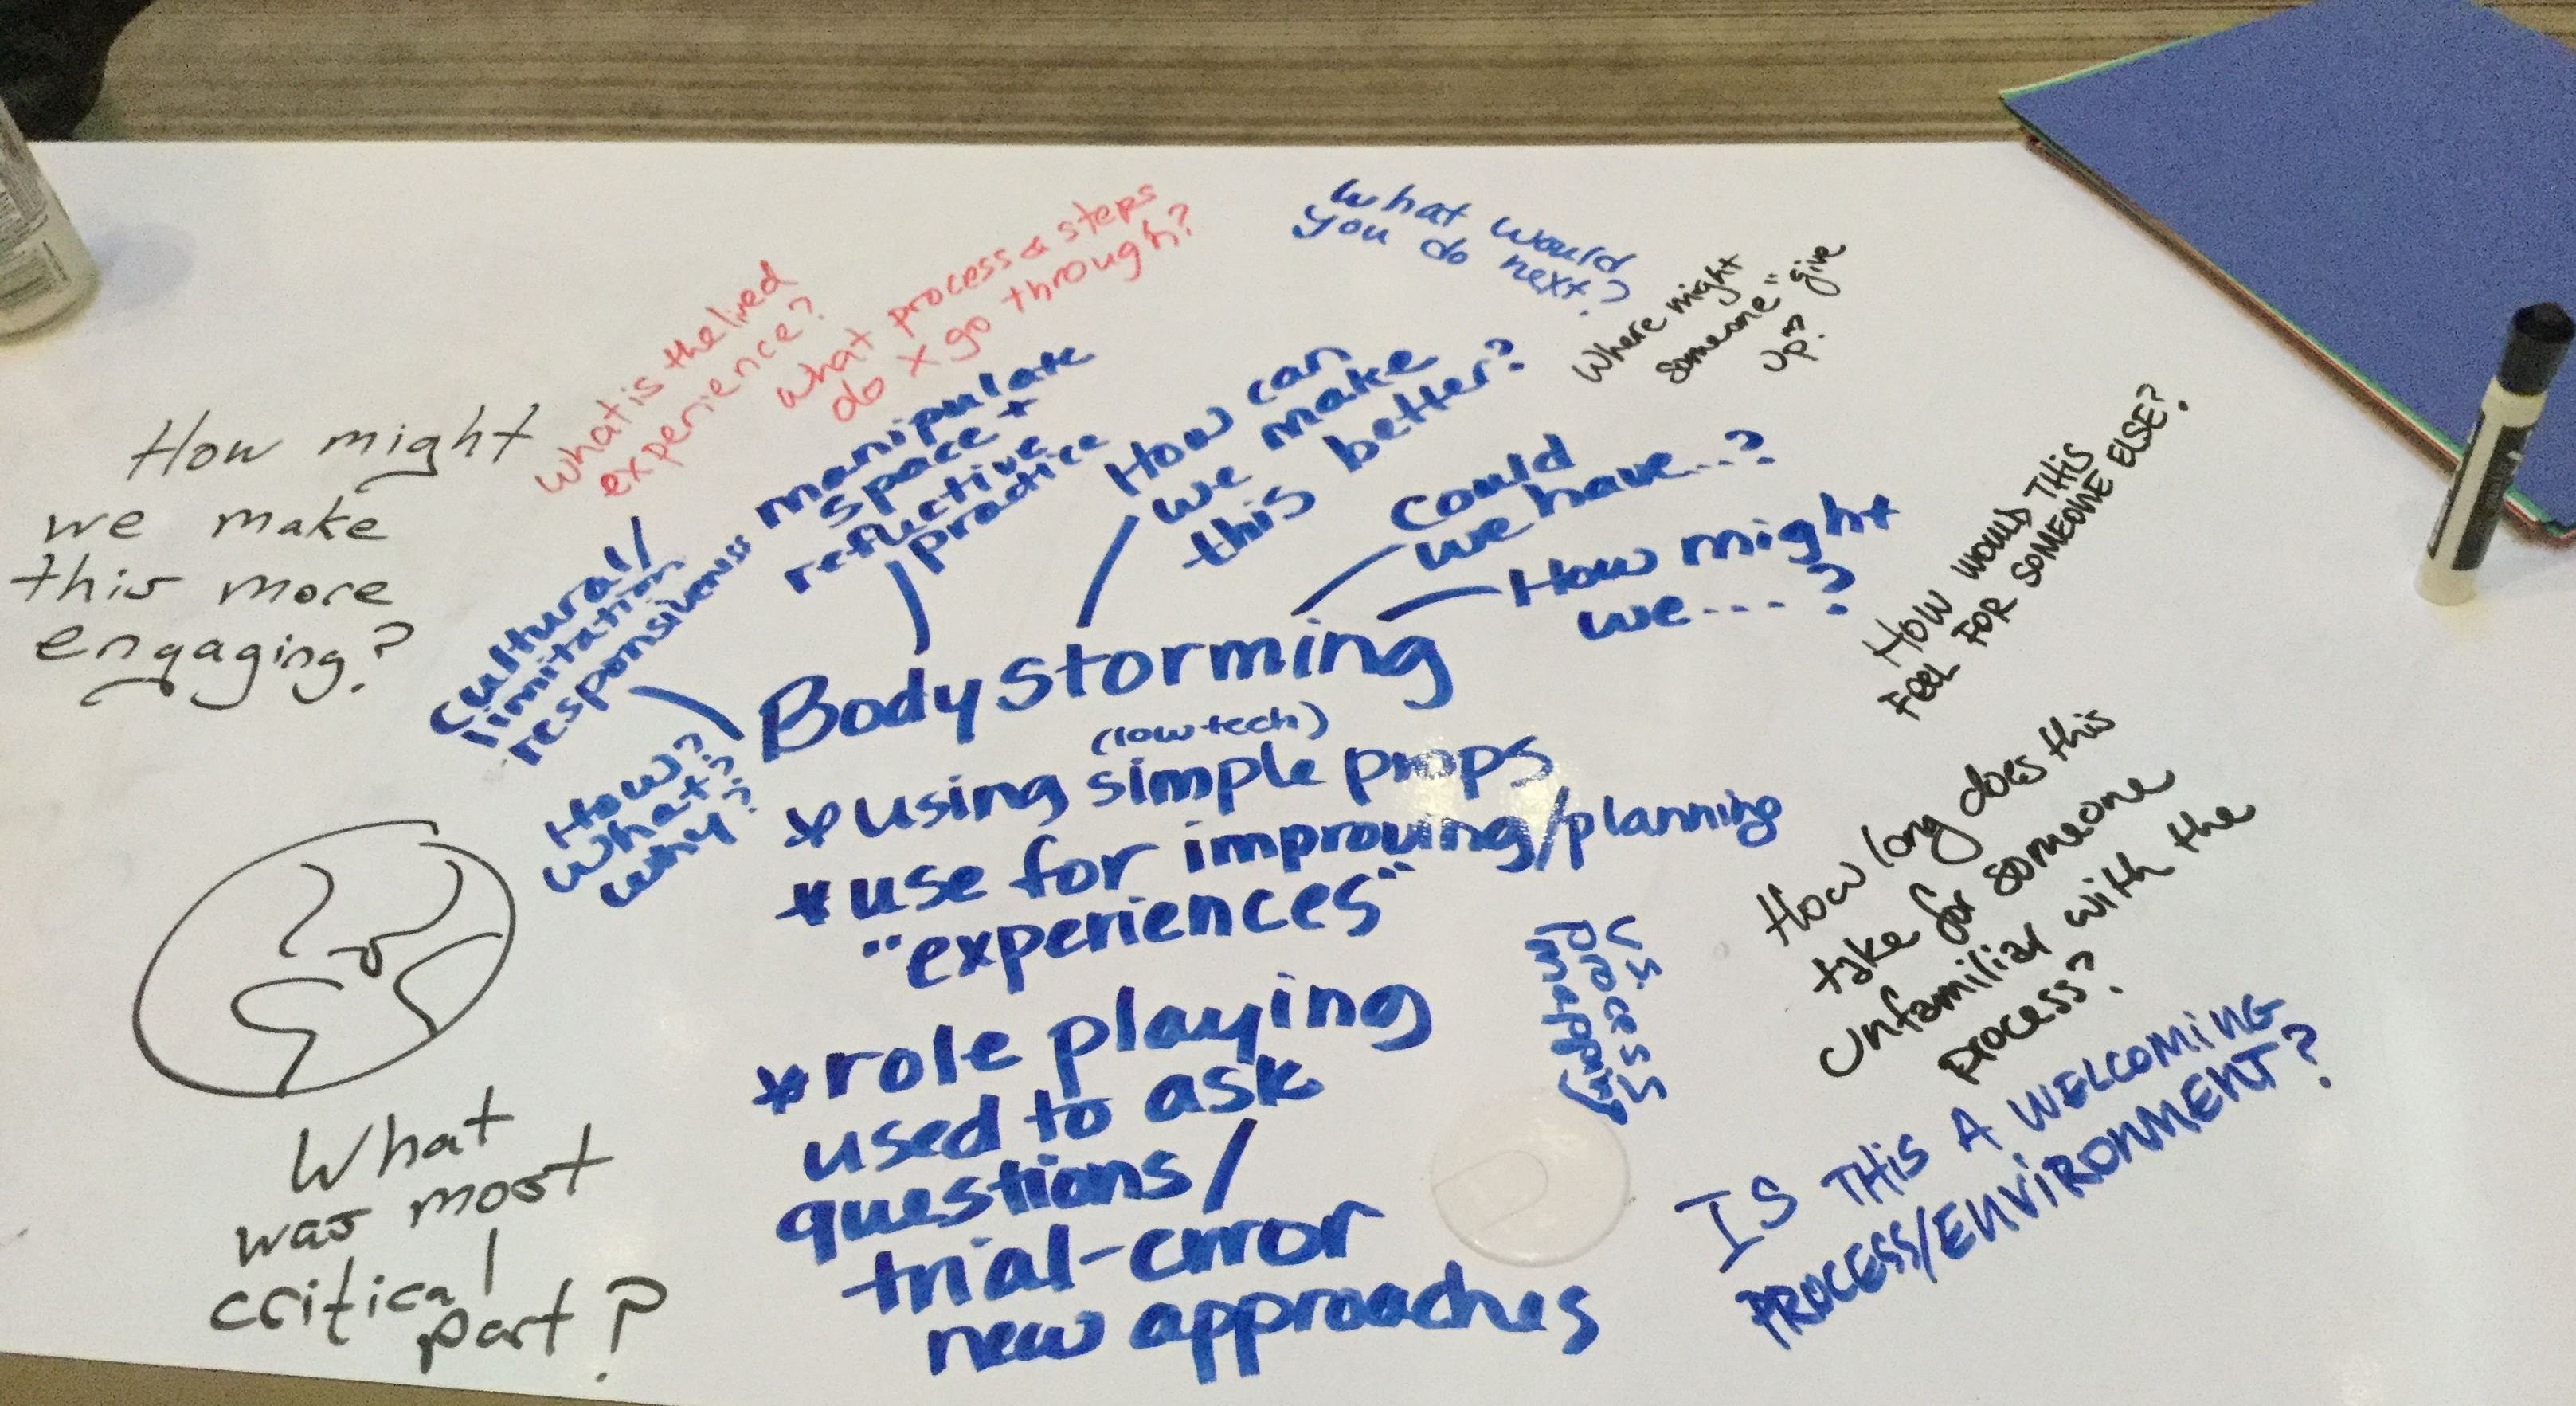 How might
we make
this more
engaging?
what is the lived
experience?
what process & steps
do x go through?
what would
you do next?
Where might
someone "give
up"?
cultural/
limitation
responsiveness
manipulate
space +
reflective
practice
How can
we make
this better?
could
we have...?
How might
we....?
HOW WOULD THIS
FEEL FOR SOMEONE ELSE?
How?
what?
why?
Bodystorming
(low tech)
* using simple props
* use for improving/planning
"experiences"
* role playing
used to ask
questions/
trial-error
new approaches
vs
process
mapping
How long does this
take for someone
unfamiliar with the
process?
IS THIS A WELCOMING
PROCESS/ENVIRONMENT?
What
was most
critical
part?